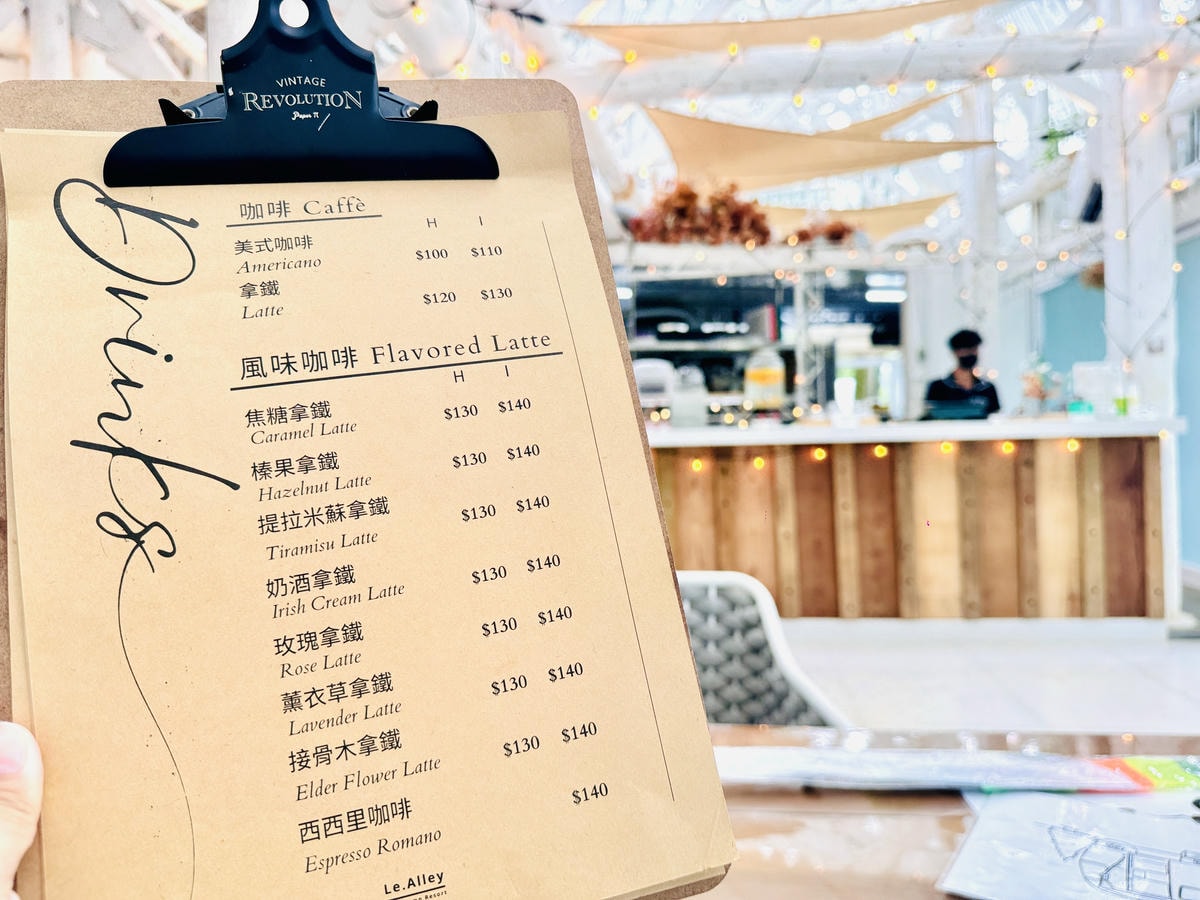 VINTAGE
REVOLUTION
Paper π
Drinks
咖啡 Caffè
H I
美式咖啡
Americano
$100 $110
拿鐵
Latte
$120 $130
風味咖啡 Flavored Latte
H I
焦糖拿鐵
Caramel Latte
$130 $140
榛果拿鐵
Hazelnut Latte
$130 $140
提拉米蘇拿鐵
Tiramisu Latte
$130 $140
奶酒拿鐵
Irish Cream Latte
$130 $140
玫瑰拿鐵
Rose Latte
$130 $140
薰衣草拿鐵
Lavender Latte
$130 $140
接骨木拿鐵
Elder Flower Latte
$130 $140
西西里咖啡
Espresso Romano
$140
Le.Alley
Resort